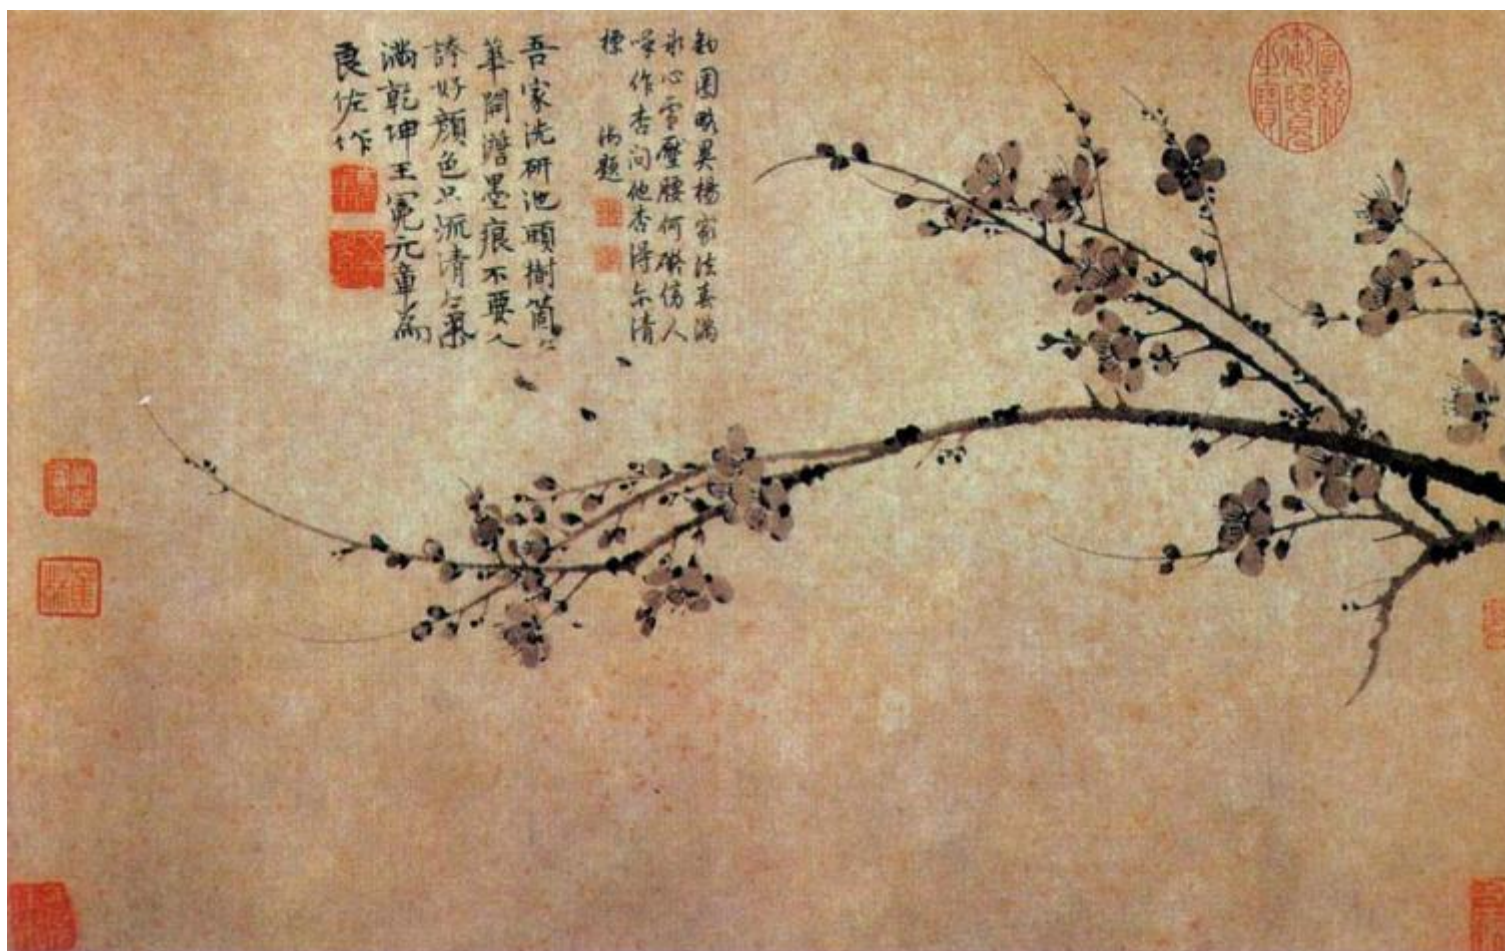 鈎圈畧異楊家法春滿
氷心雪壓腰何礙傍人
喚作杏問他杏得尓清
標 御題
吾家洗研池頭樹箇〻
華開澹墨痕不要人
誇好顔色只流清氣
滿乾坤王冕元章為
良佐作